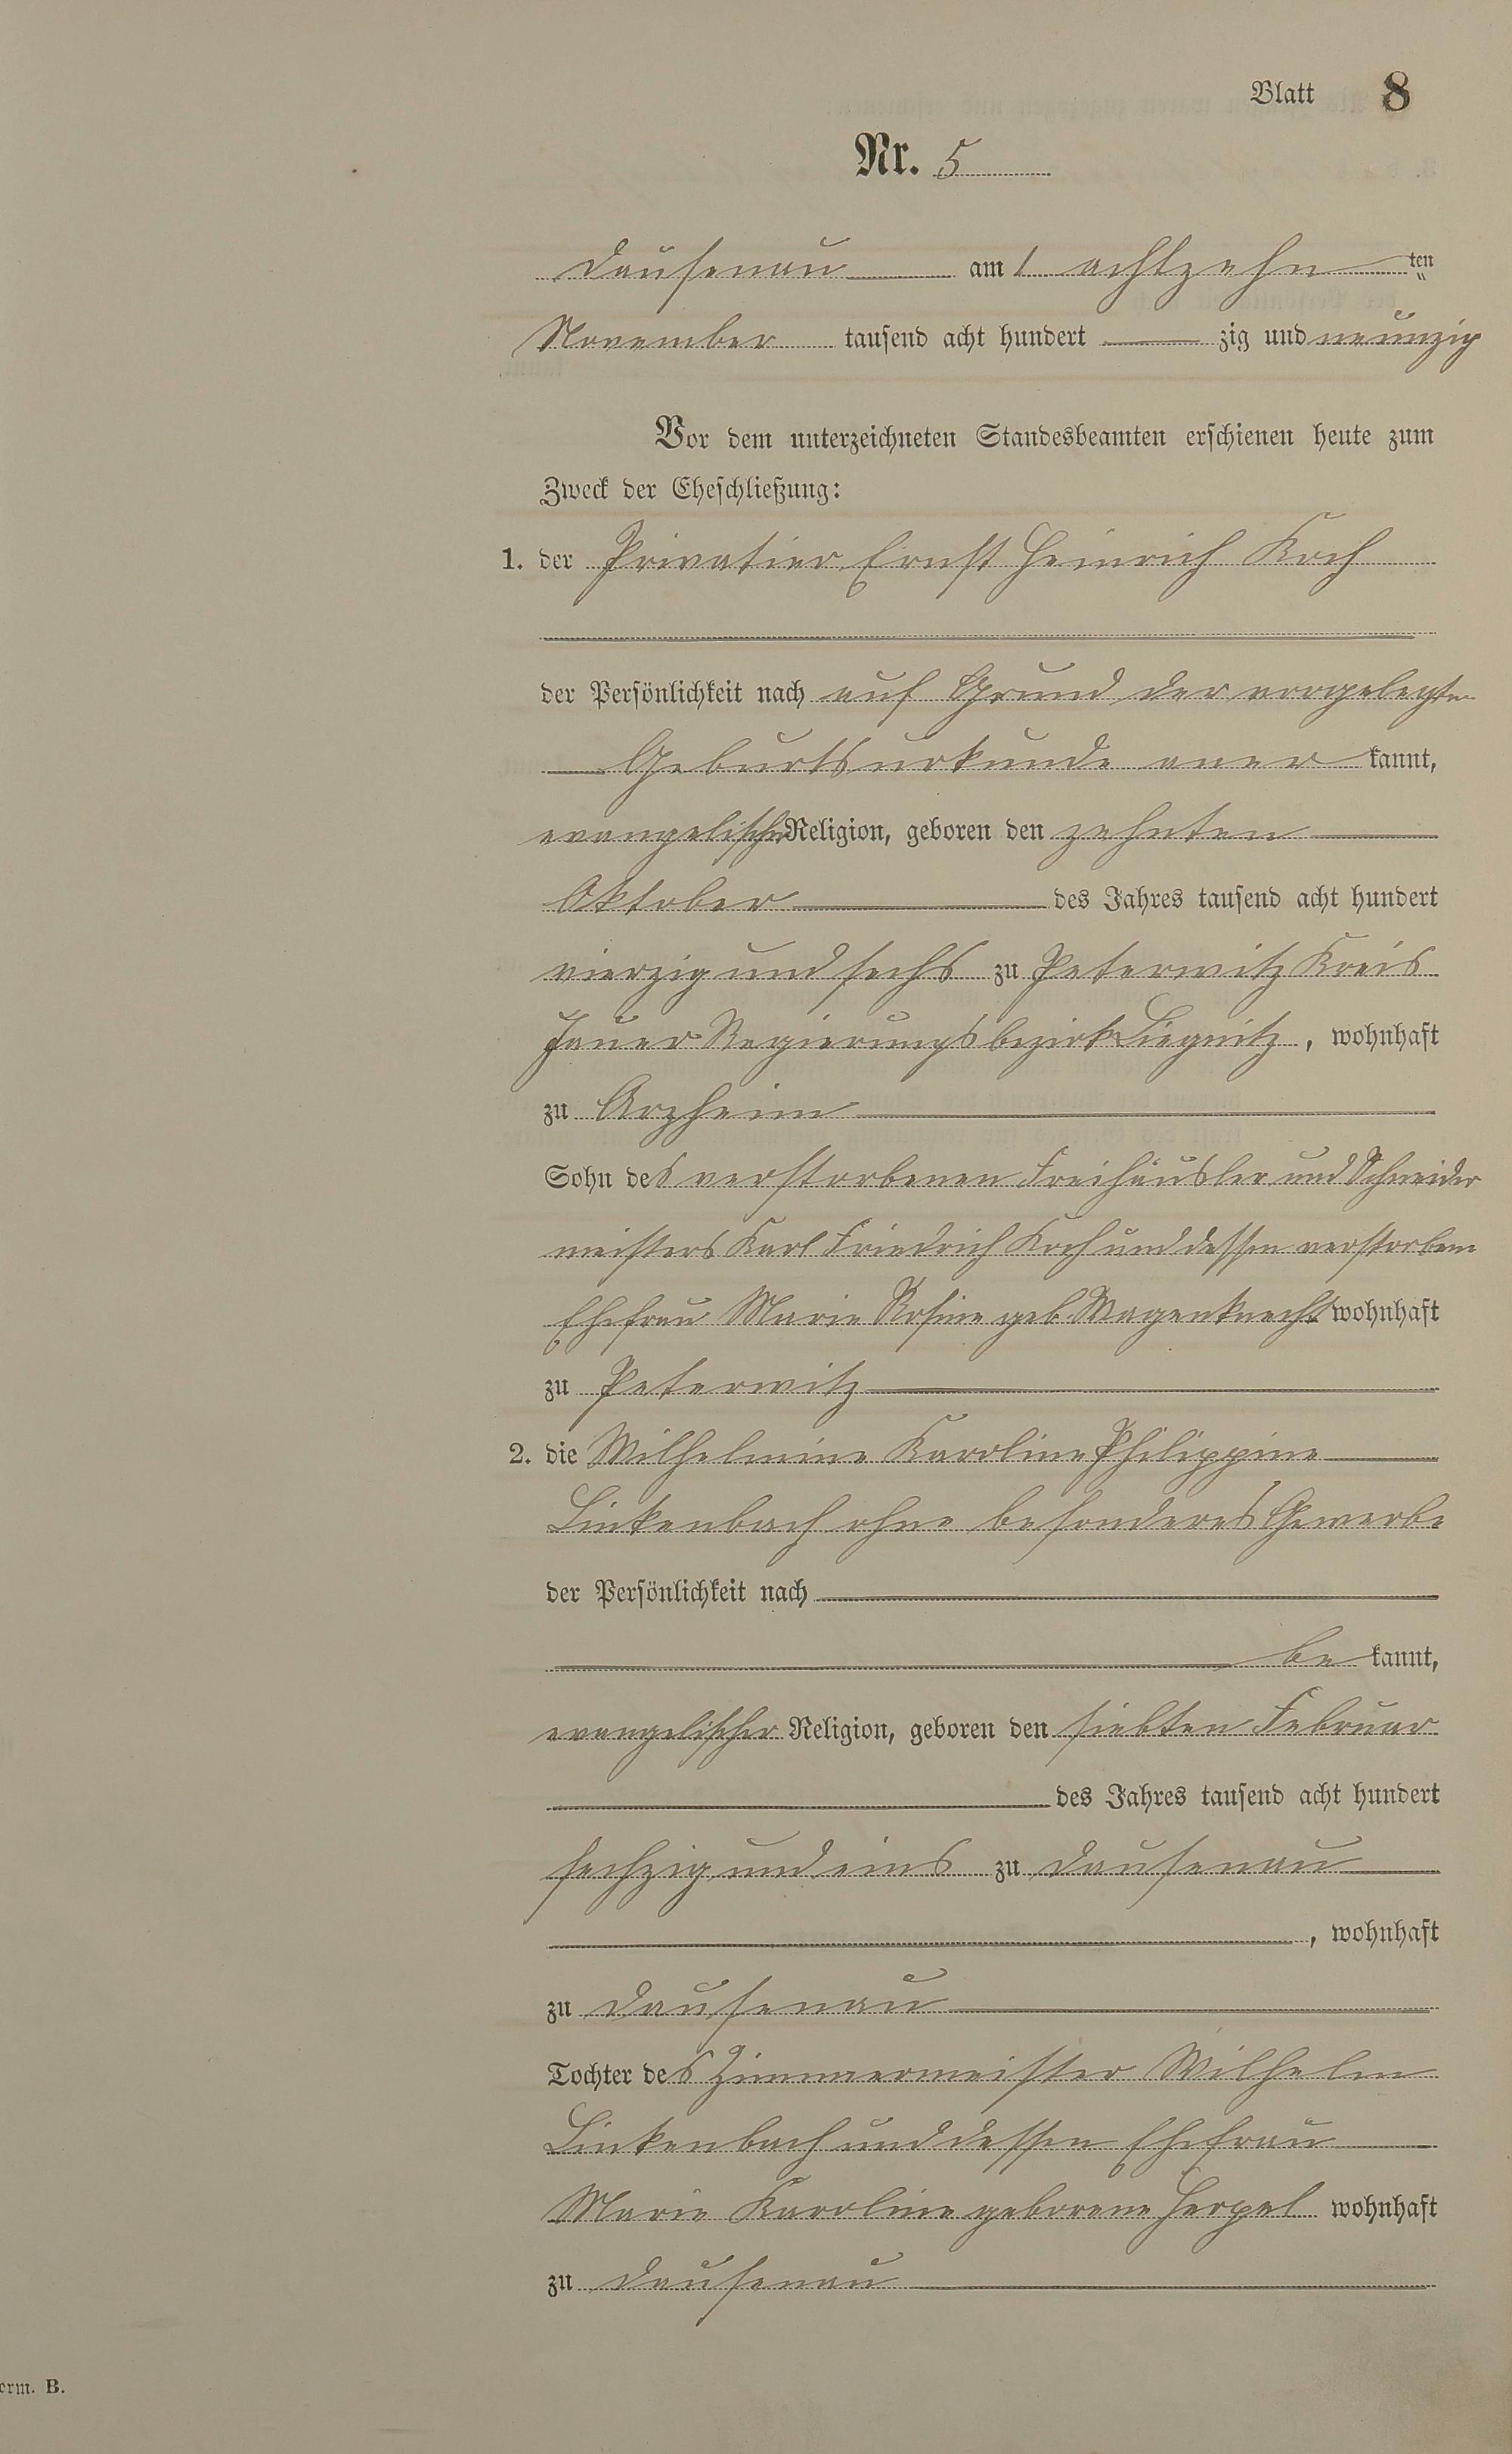 Blatt 8
Nr. 5
Dausenau am achtzehnten
November tausend acht hundert zig und neunzig
Vor dem unterzeichneten Standesbeamten erschienen heute zum
Zweck der Eheschließung:
1. der Privatier Ernst Heinrich Koch
der Persönlichkeit nach auf Grund der vorgelegten
Geburtsurkunde anerkannt,
evangelischer Religion, geboren den zehnten
Oktober des Jahres tausend acht hundert
vierzig und sechs zu Peterwitz Kreis
Jauer Regierungsbezirk Liegnitz, wohnhaft
zu Arzheim
Sohn des verstorbenen Freihäusler und Schneider
meisters Karl Friedrich Koch und dessen verstorbene
Ehefrau Marie Rosine geb. Wagenknecht wohnhaft
zu Peterwitz
2. die Wilhelmine Karoline Philippine
Linkenbach ohne besonderes Gewerbe
der Persönlichkeit nach
be kannt,
evangelischer Religion, geboren den siebten Februar
des Jahres tausend acht hundert
sechzig und eins zu Dausenau
, wohnhaft
zu Dausenau
Tochter des Zimmermeister Wilhelm
Linkenbach und dessen Ehefrau
Marie Karoline geborene Herpel wohnhaft
zu Dausenau
orm. B.